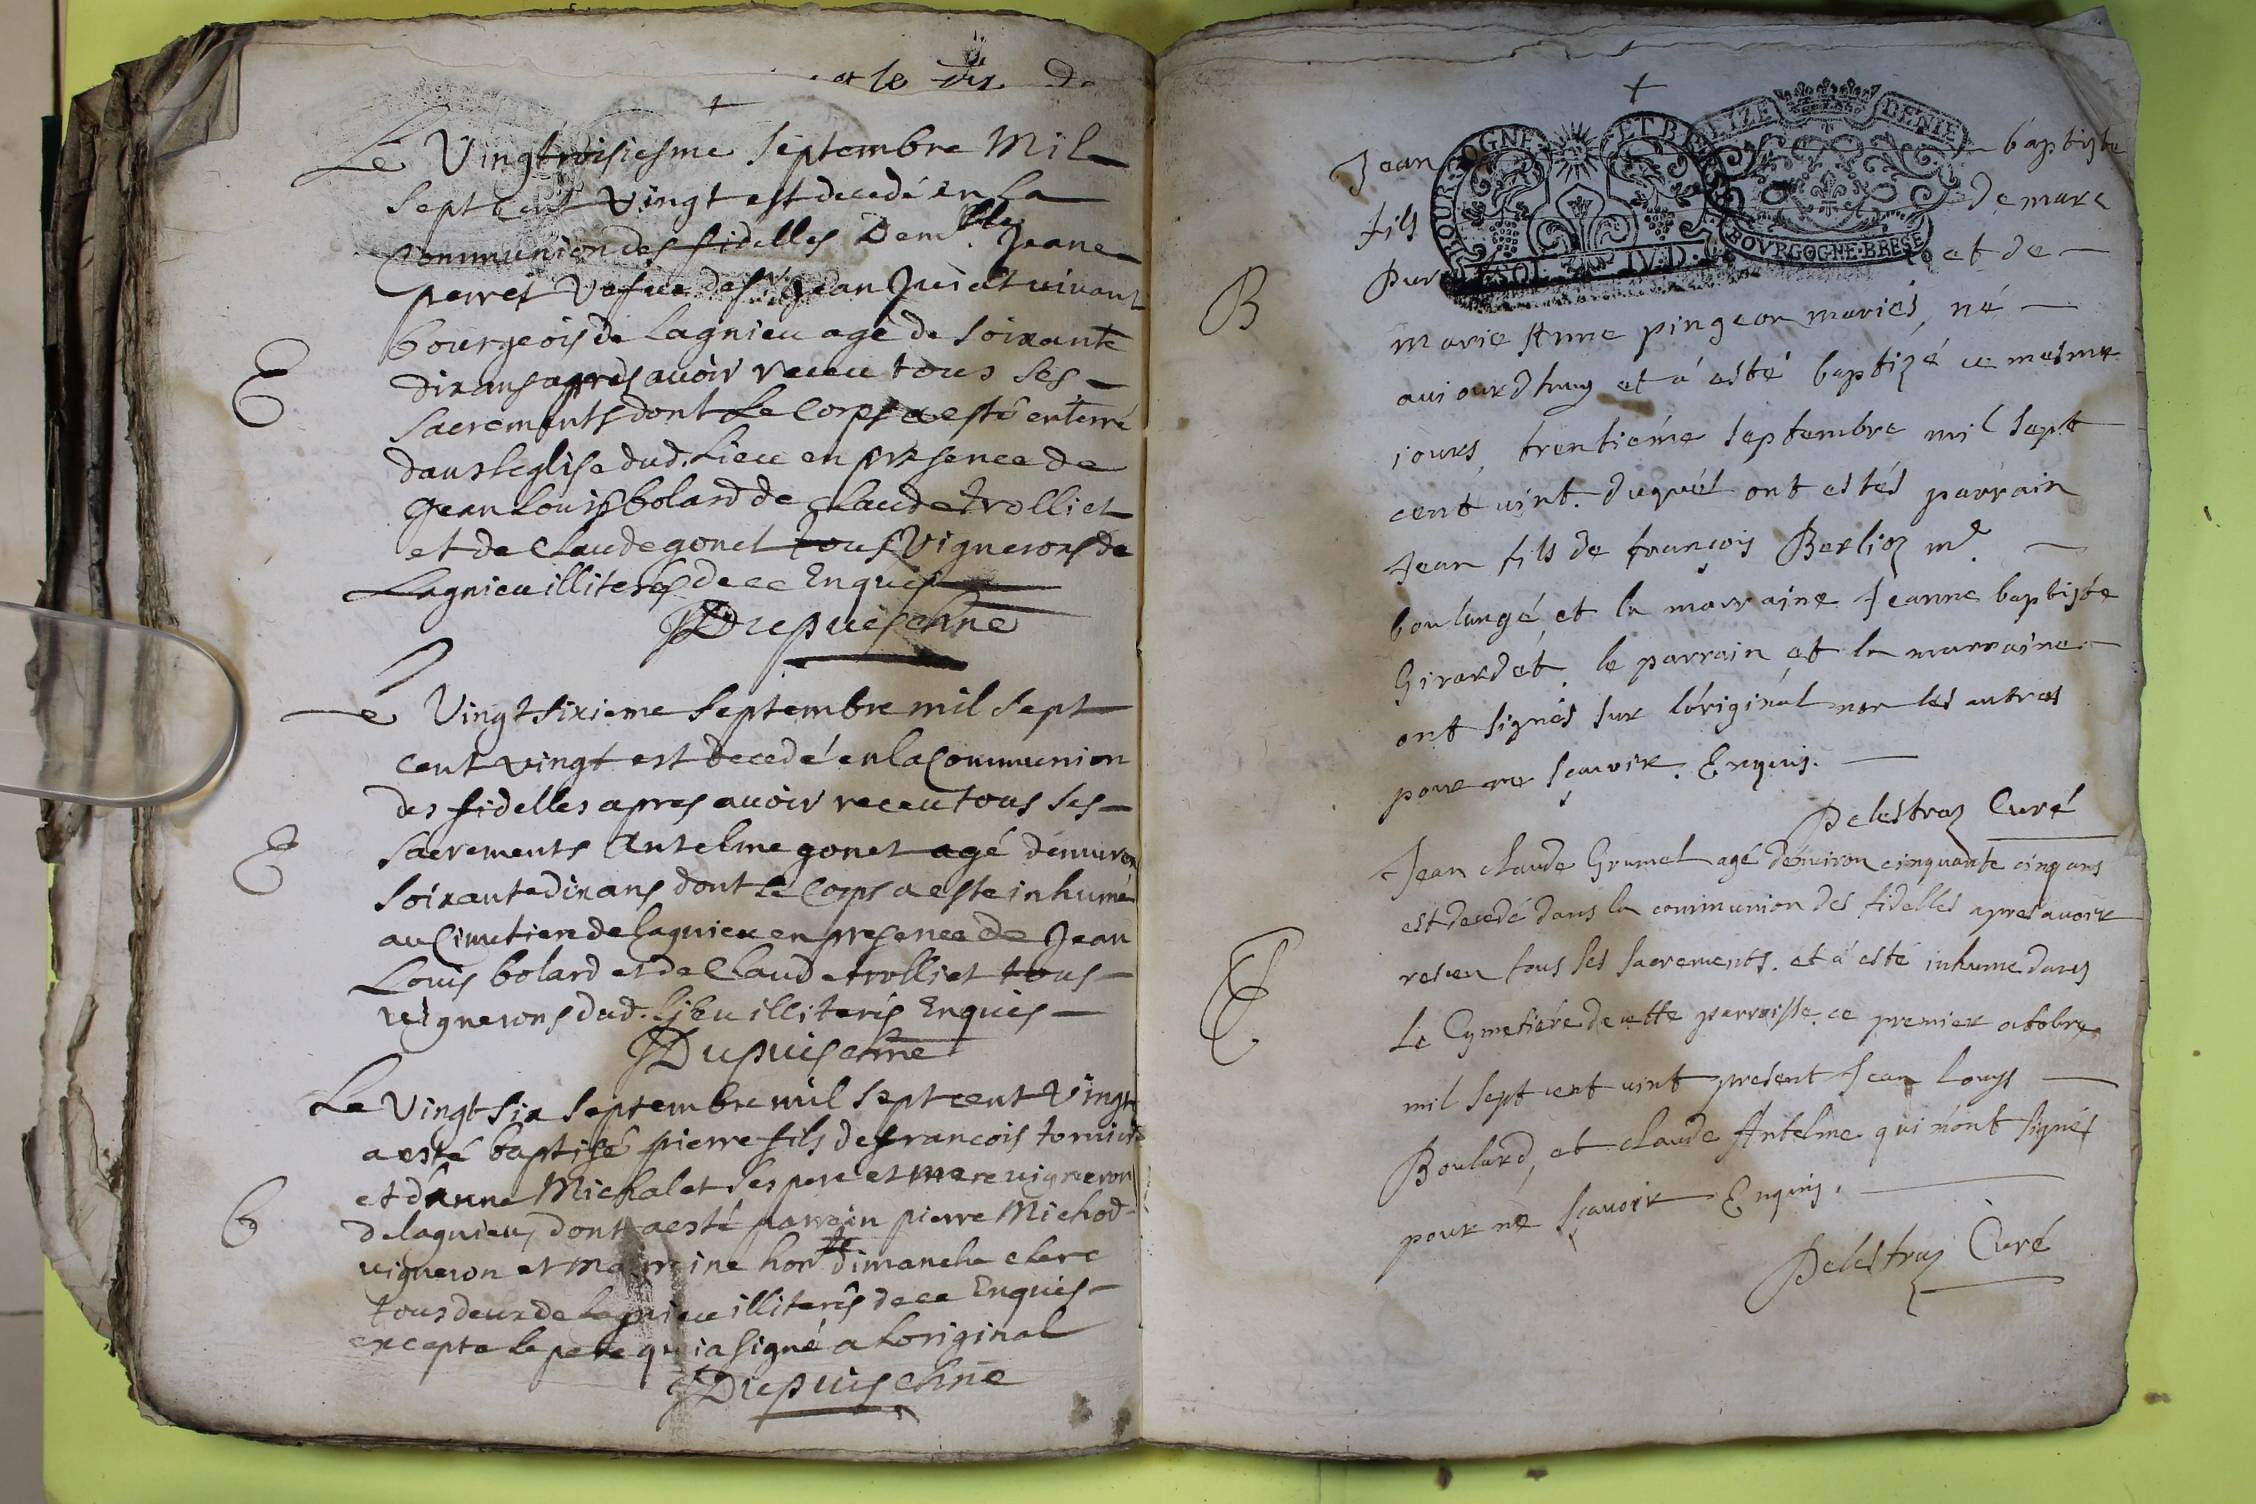 et le dix de
Le Vingtroisiesme Septembre Mil
sept cent vingt est decedé en La
Communion des fidelles Demlle Jeane
perret vefue de sr Jean Juiat vivant
bourgeois de Lagnieu agé de soixante
dix ans apres avoir receu tous ses
sacrements dont Le Corps a esté enterré
dans leglise dud. Lieu en presence de
Jean Louis bolard de Claude Trolliet
et de Claude gonet tous Vignerons de
Lagnieu illiterés de ce Enquis
E
JDupuis chne
Le Vingt sixieme Septembre mil sept
cent vingt est decedé en la Communion
des fidelles apres avoir receu tous ses
sacrements Antelme gonet agé denuiron
soixante dix ans dont Le Corps a esté inhumé
au Cimetiere de lagnieu en presence de Jean
Louis bolard et de Claude trolliet tous
vignerons dud. Lieu illiterés Enquis
E
JDupuis chne
Le Vingt six Septembre mil sept cent Vingt
a esté baptisé pierre fils de francois
et d'Anne Michalet ses pere et mere vigneron
de lagnieu, dont a esté parrein pierre Michod
vigneron et marreine honte dimanche clerc
tous deux de Lagnieu illiterés de ce Enquis
excepte le pere qui a signé a Loriginal
b
JDupuis chne
BOURGOGNE ET BRE
SOL. IV. D.
LIZE DENIE
BOVRGOGNE·BRESE
Jean baptiste
fils de marc
et de
B
marie Anne pingeon mariés, né
aujourdhuy et a esté baptizé ce mesme
jours, trentiéme septembre mil sept
cent vint. duquel ont estés parrain
Jean fils de françois Berlioz md
boulangé, et la marraine Jeanne baptiste
Girardet. le parrain et la marraine
ont signés sur l'original non les autres
pour ne sçavoir. Enquis.
Delestraz Curé
Jean claude Grumel agé denviron cinquante cinq ans
est decedé dans la communion des fidelles apres avoir
receu tous ses sacrements. et a esté inhume dans
Le Cymetiére de cette parroisse, ce premier octobre
mil sept cent vint present Jean Louys
Boulard, et claude Antelme qui n'ont signés
pour ne sçavoir Enquis.
E
Delestraz Curé